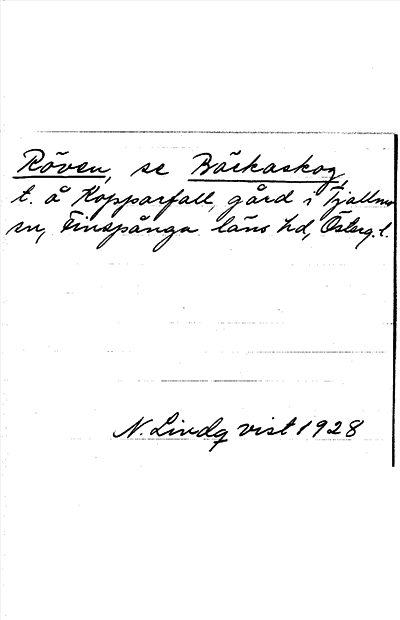 Röven, se Bäckaskog,
t. å Kopparfall, gård i Tjällmo
sn, Finspånga läns hd, Österg. l.
N. Lindqvist 1928